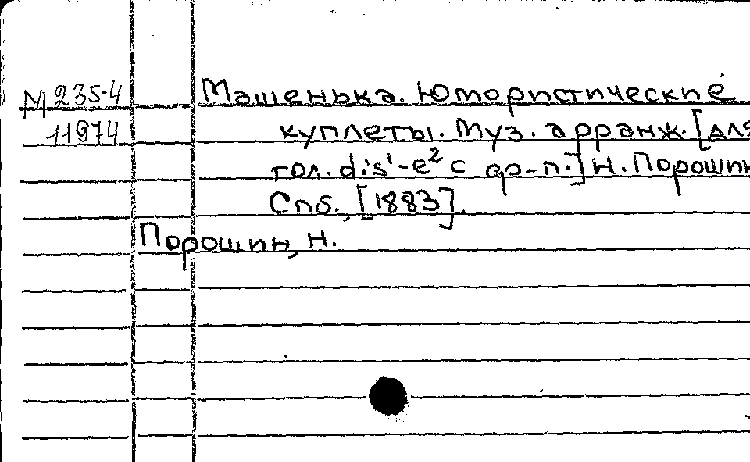 М 235-4 Машенька. Юмористические
11974 куплеты. Муз. арранж. [для
гол. dis¹-e² с фр-п.] Н. Порошин
Спб., [1883].
Порошин, Н.